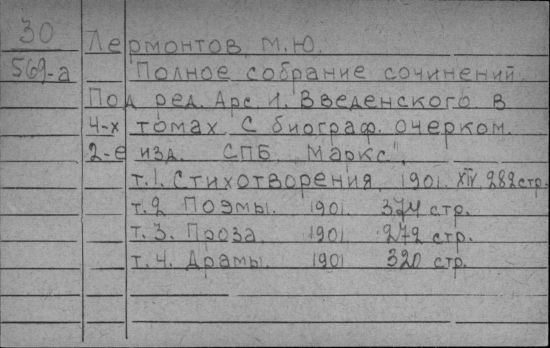 30 Лермонтов М.Ю.
569-а Полное собрание сочинений.
Под ред. Арс. И. Введенского в
4-х томах. С биограф. очерком.
2-е изд. СПБ „Маркс".
т.1. Стихотворения. 1901. XIV, 282 стр.
т.2 Поэмы. 1901. 374 стр.
т.3. Проза. 1901 272 стр.
т.4. Драмы. 1901 320 стр.